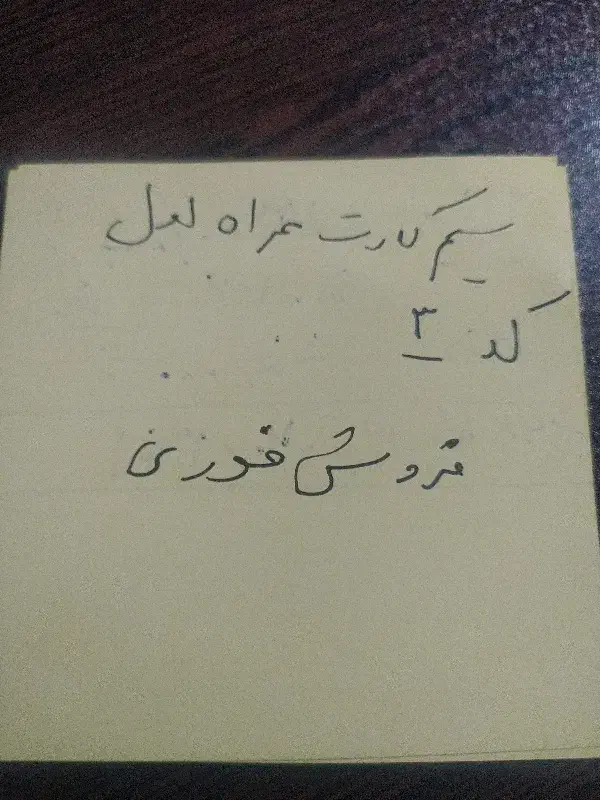 سیم کارت همراه اول
کد ۳
فروش فوری